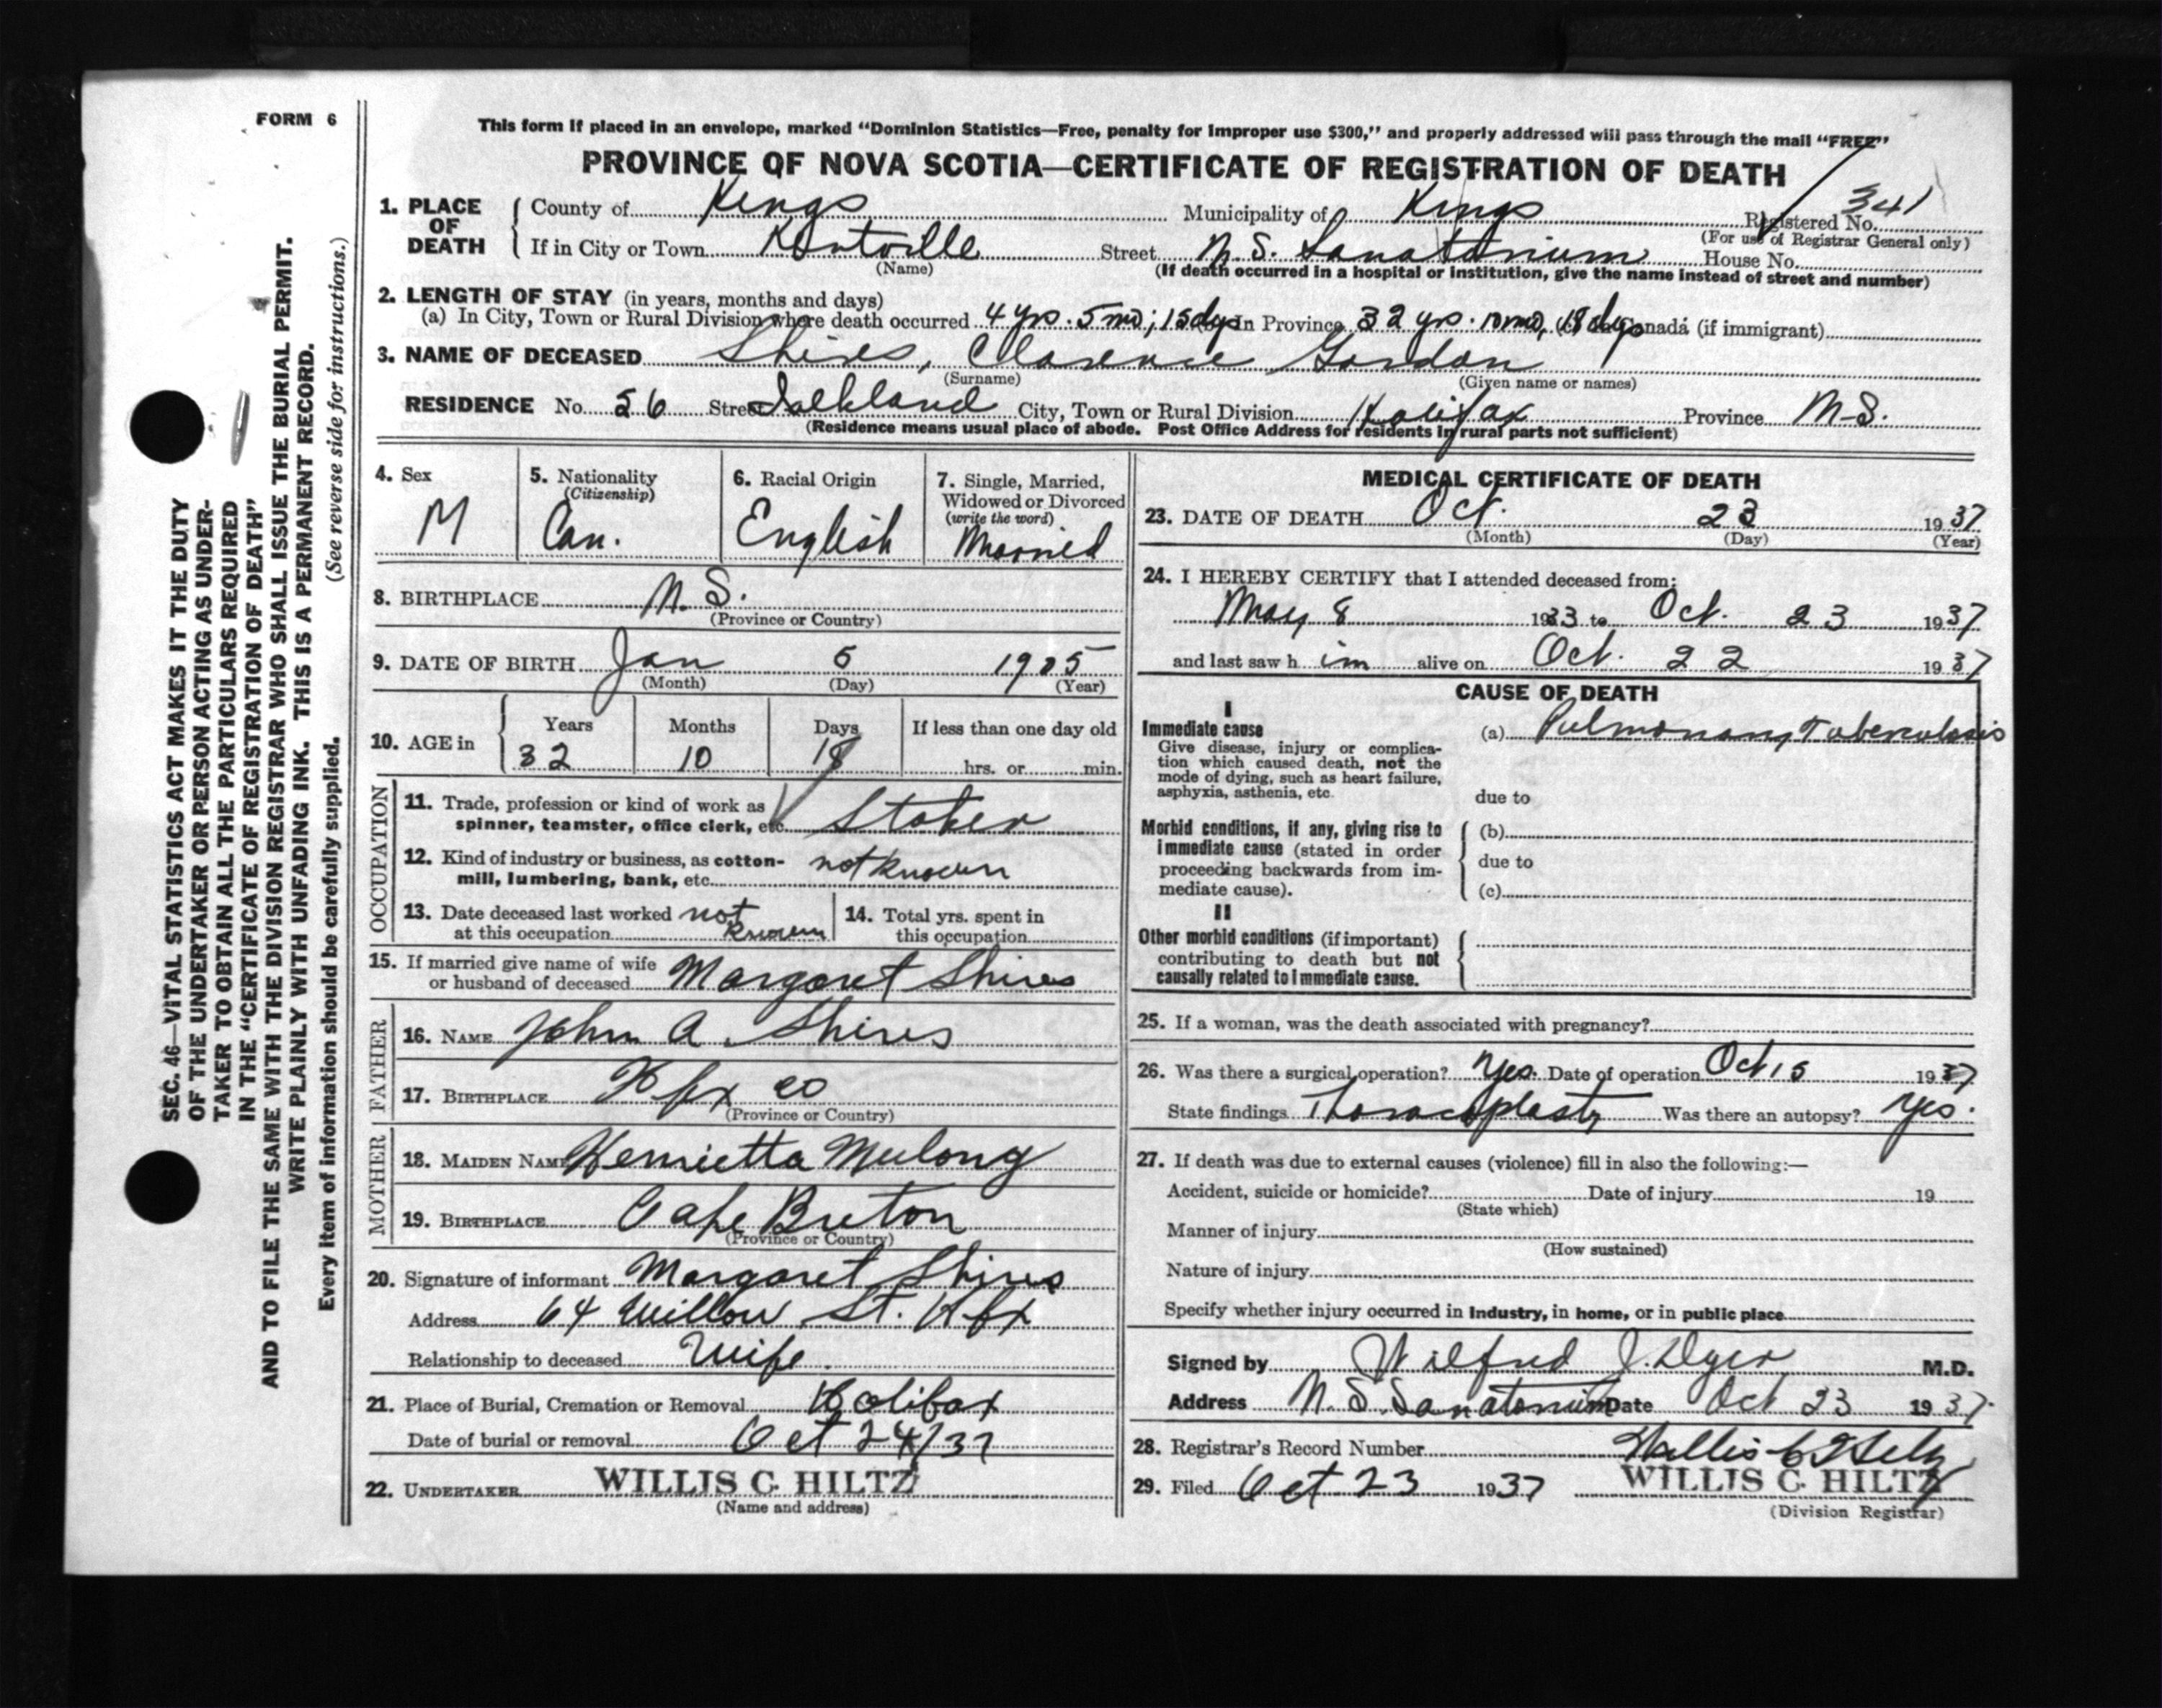 FORM 6
This form if placed in an envelope, marked "Dominion Statistics—Free, penalty for improper use $300," and properly addressed will pass through the mail "FREE"
PROVINCE OF NOVA SCOTIA—CERTIFICATE OF REGISTRATION OF DEATH
1. PLACE OF DEATH County of Kings Municipality of Kings Registered No. 341
(For use of Registrar General only)
If in City or Town Kentville Street N. S. Sanatorium House No.
(Name) (If death occurred in a hospital or institution, give the name instead of street and number)
2. LENGTH OF STAY (in years, months and days)
(a) In City, Town or Rural Division where death occurred 4 yrs. 5 mo; 15 dys In Province 32 yrs. 10 mo, 18 dys Canada (if immigrant)
3. NAME OF DECEASED Shires, Clarence Gordon
(Surname) (Given name or names)
RESIDENCE No. 56 Street Falkland City, Town or Rural Division Halifax Province N.S.
(Residence means usual place of abode. Post Office Address for residents in rural parts not sufficient)
4. Sex M
5. Nationality (Citizenship) Can.
6. Racial Origin English
7. Single, Married, Widowed or Divorced (write the word) Married
8. BIRTHPLACE N. S.
(Province or Country)
9. DATE OF BIRTH Jan 5 1905
(Month) (Day) (Year)
10. AGE in Years Months Days If less than one day old
32 10 18 hrs. or min.
OCCUPATION
11. Trade, profession or kind of work as
spinner, teamster, office clerk, etc. Stoker
12. Kind of industry or business, as cotton-
mill, lumbering, bank, etc. not known
13. Date deceased last worked
at this occupation not known
14. Total yrs. spent in
this occupation
15. If married give name of wife
or husband of deceased Margaret Shires
FATHER
16. NAME John A Shires
17. BIRTHPLACE Hfx co
(Province or Country)
MOTHER
18. MAIDEN NAME Henrietta
19. BIRTHPLACE Cape Breton
(Province or Country)
20. Signature of informant Margaret Shires
Address 64 Willow St. Hfx
Relationship to deceased Wife.
21. Place of Burial, Cremation or Removal Halifax
Date of burial or removal Oct 24/37
22. UNDERTAKER WILLIS C. HILTZ
(Name and address)
MEDICAL CERTIFICATE OF DEATH
23. DATE OF DEATH Oct. 23 1937
(Month) (Day) (Year)
24. I HEREBY CERTIFY that I attended deceased from:
May 8 1933 to Oct. 23 1937
and last saw him alive on Oct. 22 1937
CAUSE OF DEATH
I
Immediate cause
Give disease, injury or complica-
tion which caused death, not the
mode of dying, such as heart failure,
asphyxia, asthenia, etc.
(a) Pulmonary Tuberculosis
due to
Morbid conditions, if any, giving rise to
immediate cause (stated in order
proceeding backwards from im-
mediate cause).
(b)
due to
(c)
II
Other morbid conditions (if important)
contributing to death but not
causally related to immediate cause.
25. If a woman, was the death associated with pregnancy?
26. Was there a surgical operation? Yes. Date of operation Oct 15 1937
State findings Thoracoplasty Was there an autopsy? Yes.
27. If death was due to external causes (violence) fill in also the following:—
Accident, suicide or homicide? Date of injury 19
(State which)
Manner of injury
(How sustained)
Nature of injury
Specify whether injury occurred in industry, in home, or in public place
Signed by Wilfred J. Dyer M.D.
Address N. S. Sanatorium Date Oct 23 1937.
28. Registrar's Record Number Willis C Hiltz
29. Filed Oct 23 1937 WILLIS C. HILTZ
(Division Registrar)
SEC. 46—VITAL STATISTICS ACT MAKES IT THE DUTY
OF THE UNDERTAKER OR PERSON ACTING AS UNDER-
TAKER TO OBTAIN ALL THE PARTICULARS REQUIRED
IN THE "CERTIFICATE OF REGISTRATION OF DEATH"
AND TO FILE THE SAME WITH THE DIVISION REGISTRAR WHO SHALL ISSUE THE BURIAL PERMIT.
WRITE PLAINLY WITH UNFADING INK. THIS IS A PERMANENT RECORD.
Every item of information should be carefully supplied. (See reverse side for instructions.)